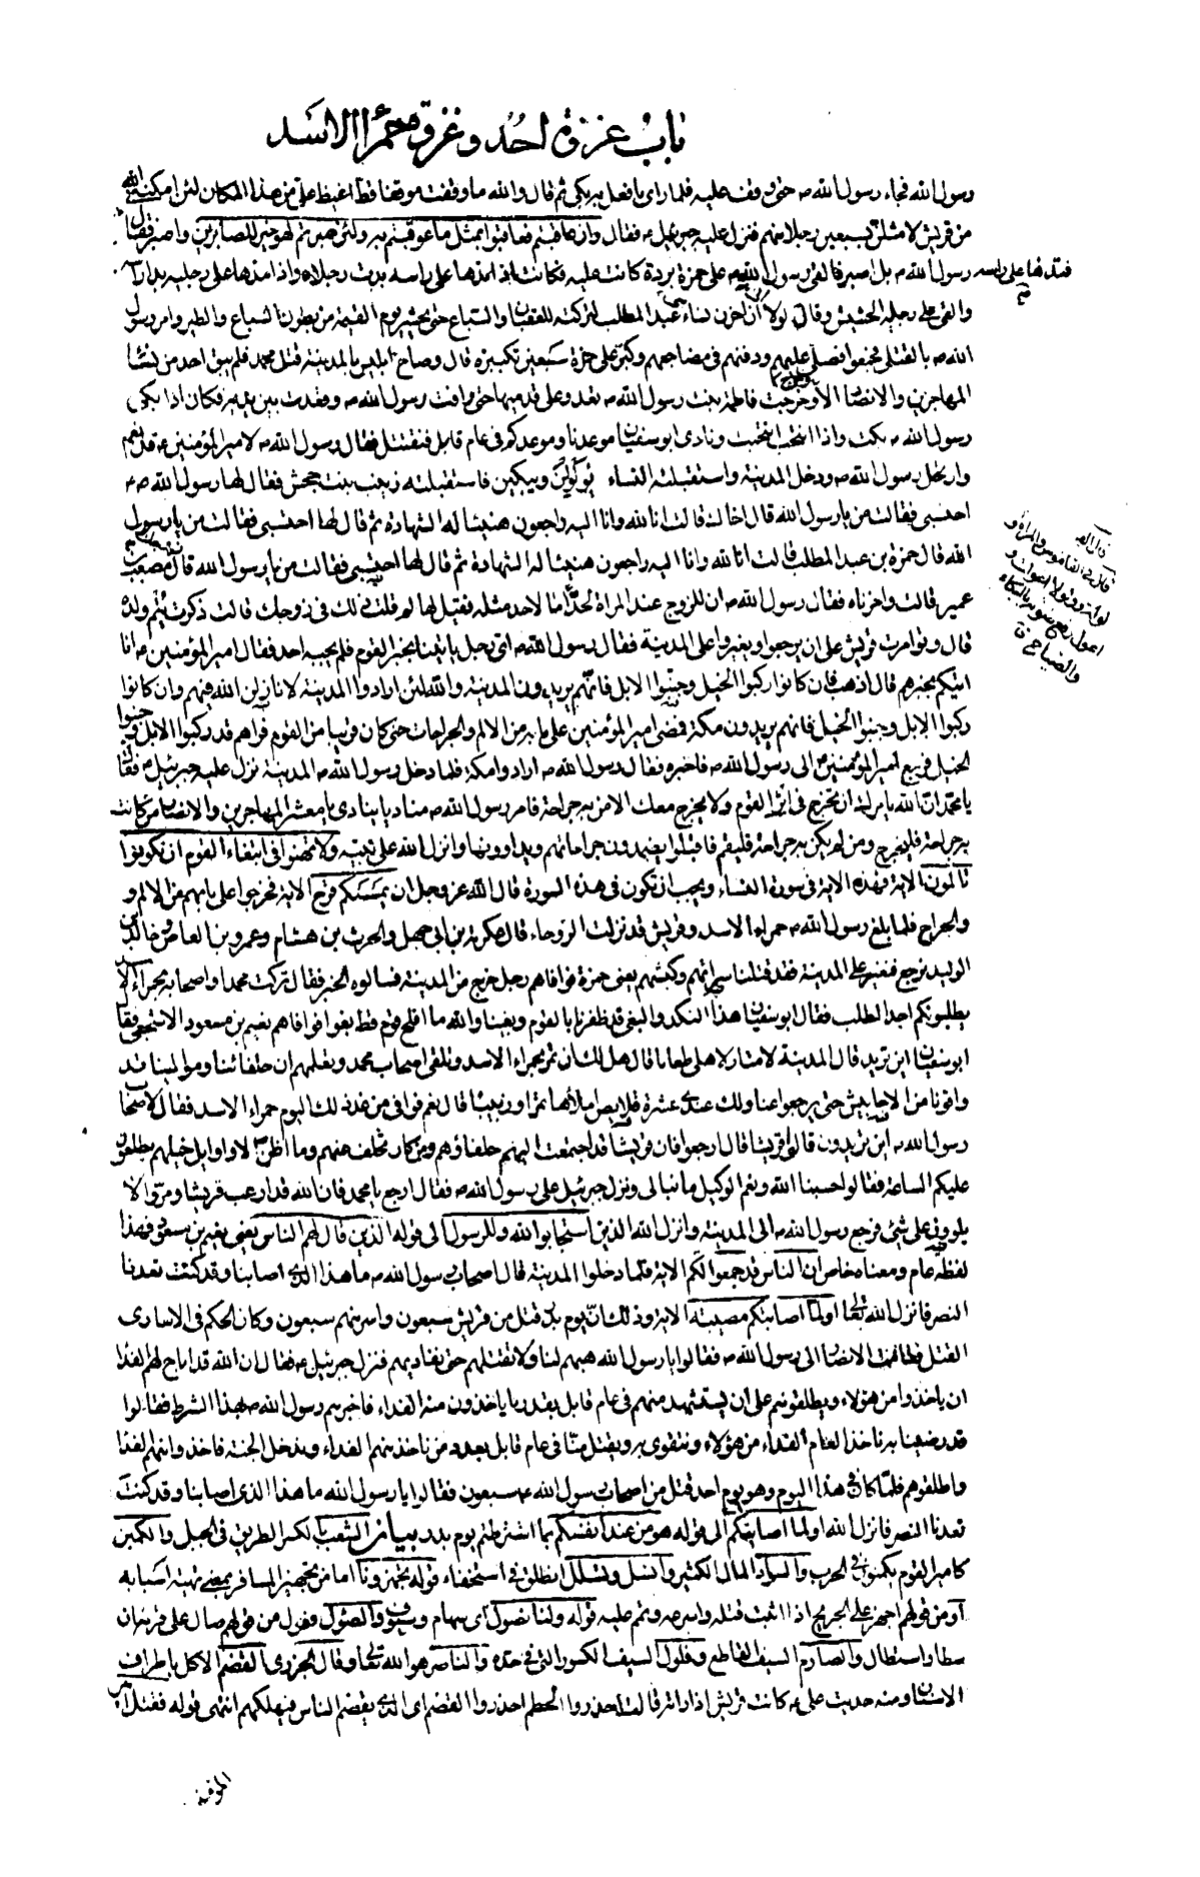 باب غزوة احد وغزوة حمراء الاسد
رسول الله فجاء رسول الله ص حتى وقف عليه فلما راى ما فعل به بكى ثم قال والله ما وقفت موقفا قط اغيظ على من هذا المكان لئن امكننى الله
من قريش لامثلن بسبعين رجلا منهم فنزل عليه جبرئيل ع فقال وان عاقبتم فعاقبوا بمثل ما عوقبتم به ولئن صبرتم لهو خير للصابرين واصبر فقال
رسول الله ص بل اصبر فالقى رسول الله ص على حمزة بردة كانت عليه فكانت اذا مدها على راسه بدت رجلاه واذا مدها على رجليه بدا راسه فمدها على راسه
والقى على رجليه الحشيش وقال لولا ان احزن نساء بنى عبد المطلب لتركته للعقبان والسباع حتى يحشر يوم القيمة من بطون السباع والطير وامر رسول
الله ص بالقتلى فجمعوا فصلى عليهم ودفنهم فى مضاجعهم وكبر على حمزة سبعين تكبيرة قال وصاح ابليس بالمدينة قتل محمد فلم يبق احد من نساء
المهاجرين والانصار الا وخرجت وخرجت فاطمة بنت رسول الله ص تعدو على قدميها حتى وافت رسول الله ص وقعدت بين يديه فكان اذا بكى
رسول الله ص بكت واذا انتحب انتحبت ونادى ابوسفيان موعدنا وموعدكم فى عام قابل فنقتتل فقال رسول الله ص لامير المؤمنين ع قل نعم
وارتحل رسول الله ص ودخل المدينة واستقبلته النساء يولولن ويبكين فاستقبلته زينب بنت جحش فقال لها رسول الله ص
احتسبى فقالت من يا رسول الله قال اخاك قالت انا لله وانا اليه راجعون هنيئا له الشهادة ثم قال لها احتسبى فقالت من يا رسول
الله قال حمزة بن عبد المطلب قالت انا لله وانا اليه راجعون هنيئا له الشهادة ثم قال لها احتسبى فقالت من يا رسول الله قال مصعب بن
عمير قالت واحزناه فقال رسول الله ص ان للزوج عند المراة لحدا ما لاحد مثله فقيل لها لم قلت ذلك فى زوجك قالت ذكرت يتم ولده
قال وتوامرت قريش على ان يرجعوا ويغيروا على المدينة فقال رسول الله ص اى رجل ياتينا بخبر القوم فلم يجبه احد فقال امير المؤمنين ع انا
اتيكم بخبرهم قال اذهب فان كانوا ركبوا الخيل وجنبوا الابل فانهم يريدون المدينة والله لئن ارادوا المدينة لانازلن الله فيهم وان كانوا
ركبوا الابل وجنبوا الخيل فانهم يريدون مكة فمضى امير المؤمنين على ما به من الالم والجراحات حتى كان قريبا من القوم فراهم قد ركبوا الابل وجنبوا
الخيل فرجع امير المؤمنين ع الى رسول الله ص فاخبره فقال رسول الله ص ارادوا مكة فلما دخل رسول الله ص المدينة نزل عليه جبرئيل ع فقال
يا محمد ان الله يامرك ان تخرج فى اثر القوم ولا يخرج معك الا من به جراحة فامر رسول الله ص مناديا ينادى يا معشر المهاجرين والانصار من كانت
به جراحة فليخرج ومن لم يكن به جراحة فليقم فاقبلوا يضمدون جراحاتهم ويداوونها وانزل الله على نبيه ولا تهنوا فى ابتغاء القوم ان تكونوا
تالمون الاية فهذه الاية فى سورة النساء ويجب ان تكون فى هذه السورة قال الله عز وجل ان يمسسكم قرح الاية فخرجوا على ما بهم من الالم و
والجراح فلما بلغ رسول الله ص حمراء الاسد وقريش قد نزلت الروحاء قال عكرمة بن ابى جهل والحرث بن هشام وعمرو بن العاص وخالد بن
الوليد نرجع فنغير على المدينة فقد قتلنا سراتهم وكبشهم يعنى حمزة فوافاهم رجل خرج من المدينة فسالوه الخبر فقال تركت محمدا واصحابه بحمراء الاسد
يطلبونكم اجد الطلب فقال ابوسفيان هذا النكد والبغى قد ظفرنا بالقوم وبغينا والله ما افلح قوم قط بغوا فوافاهم نعيم بن مسعود الاشجعى فقال
ابوسفيان اين تريد قال المدينة لامتار لاهلى طعاما قال هل لك ان تمر بحمراء الاسد وتلقى اصحاب محمد وتعلمهم ان حلفائنا وموالينا قد
وافونا من الاحابيش حتى يرجعوا عنا ولك عندى عشرة قلايص املاها تمرا وزبيبا قال نعم فوافى من غد ذلك اليوم حمراء الاسد فقال لاصحاب
رسول الله ص اين تريدون قالوا قريشا قال ارجعوا فان قريشا قد اجتمعت اليهم حلفاؤهم ومن كان تخلف عنهم وما اظن الا واوايل خيلهم يطلعون
عليكم الساعة فقالوا حسبنا الله ونعم الوكيل ما نبالى ونزل جبرئيل على رسول الله ص فقال ارجع يا محمد فان الله قد ارعب قريشا ومروا لا
يلوون على شئ فرجع رسول الله ص الى المدينة وانزل الله الذين استجابوا لله وللرسول الى قوله الذين قال لهم الناس يعنى نعيم بن مسعود فهذا
لفظه عام ومعناه خاص ان الناس قد جمعوا لكم الاية فلما دخلوا المدينة قال اصحاب رسول الله ص ما هذا الذى اصابنا وقد كنت تعدنا
النصر فانزل الله تعالى اولما اصابتكم مصيبة الاية وذلك ان يوم بدر قتل من قريش سبعون واسر منهم سبعون وكان الحكم فى الاسارى
القتل فقامت الانصار الى رسول الله ص فقالوا يا رسول الله هبهم لنا ولا تقتلهم حتى نفاديهم فنزل جبرئيل ع فقال ان الله قد اباح لهم الفداء
ان ياخذوا من هؤلاء ويطلقونهم على ان يستشهد منهم فى عام قابل بقدر ما ياخذون منه الفداء فاخبرهم رسول الله ص بهذا الشرط فقالوا
قد رضينا به ناخذ العام الفداء من هؤلاء ونتقوى به ويقتل منا فى عام قابل بعدد من ناخذ منهم الفداء وندخل الجنة فاخذوا منهم الفداء
واطلقوهم فلما كان فى هذا اليوم وهو يوم احد قتل من اصحاب رسول الله ص سبعون فقالوا يا رسول الله ما هذا الذى اصابنا وقد كنت
تعدنا النصر فانزل الله اولما اصابتكم الى قوله هو من عند انفسكم بما اشترطتم يوم بدر بيان الشعب لكسر الطريق فى الجبل والكمين
كامير القوم يكمنون فى الحرب والسواد المال الكثير وانسل وتسلل انطلق فى استخفاء قوله تجهزونا اما من تجهيز المسافر بمعنى تهيئة اسبابه
او من قولهم اجهز على الجريح اذا اثبت قتله واسرعه وتمم عليه قوله ولنا نصول اى سهام وسيوف والصؤل وفعول من قولهم صال على قرنه ان
سطا واستطال والصارم السيف القاطع وفلول السيف الكسور التى فى حده والناصر هو الله تعالى وقال الجزرى القضم الاكل باطراف
الاسنان ومنه حديث على ع كانت قريش اذا راته قالت احذروا الحطم احذروا القضم اى الذى يقضم الناس فيهلكهم انتهى قوله فقتل امير
المؤمنين
قال فى القاموس والمراة و
لولة وولوالا اعولت و
اعول رفع صوته بالبكاء
والصياح ق